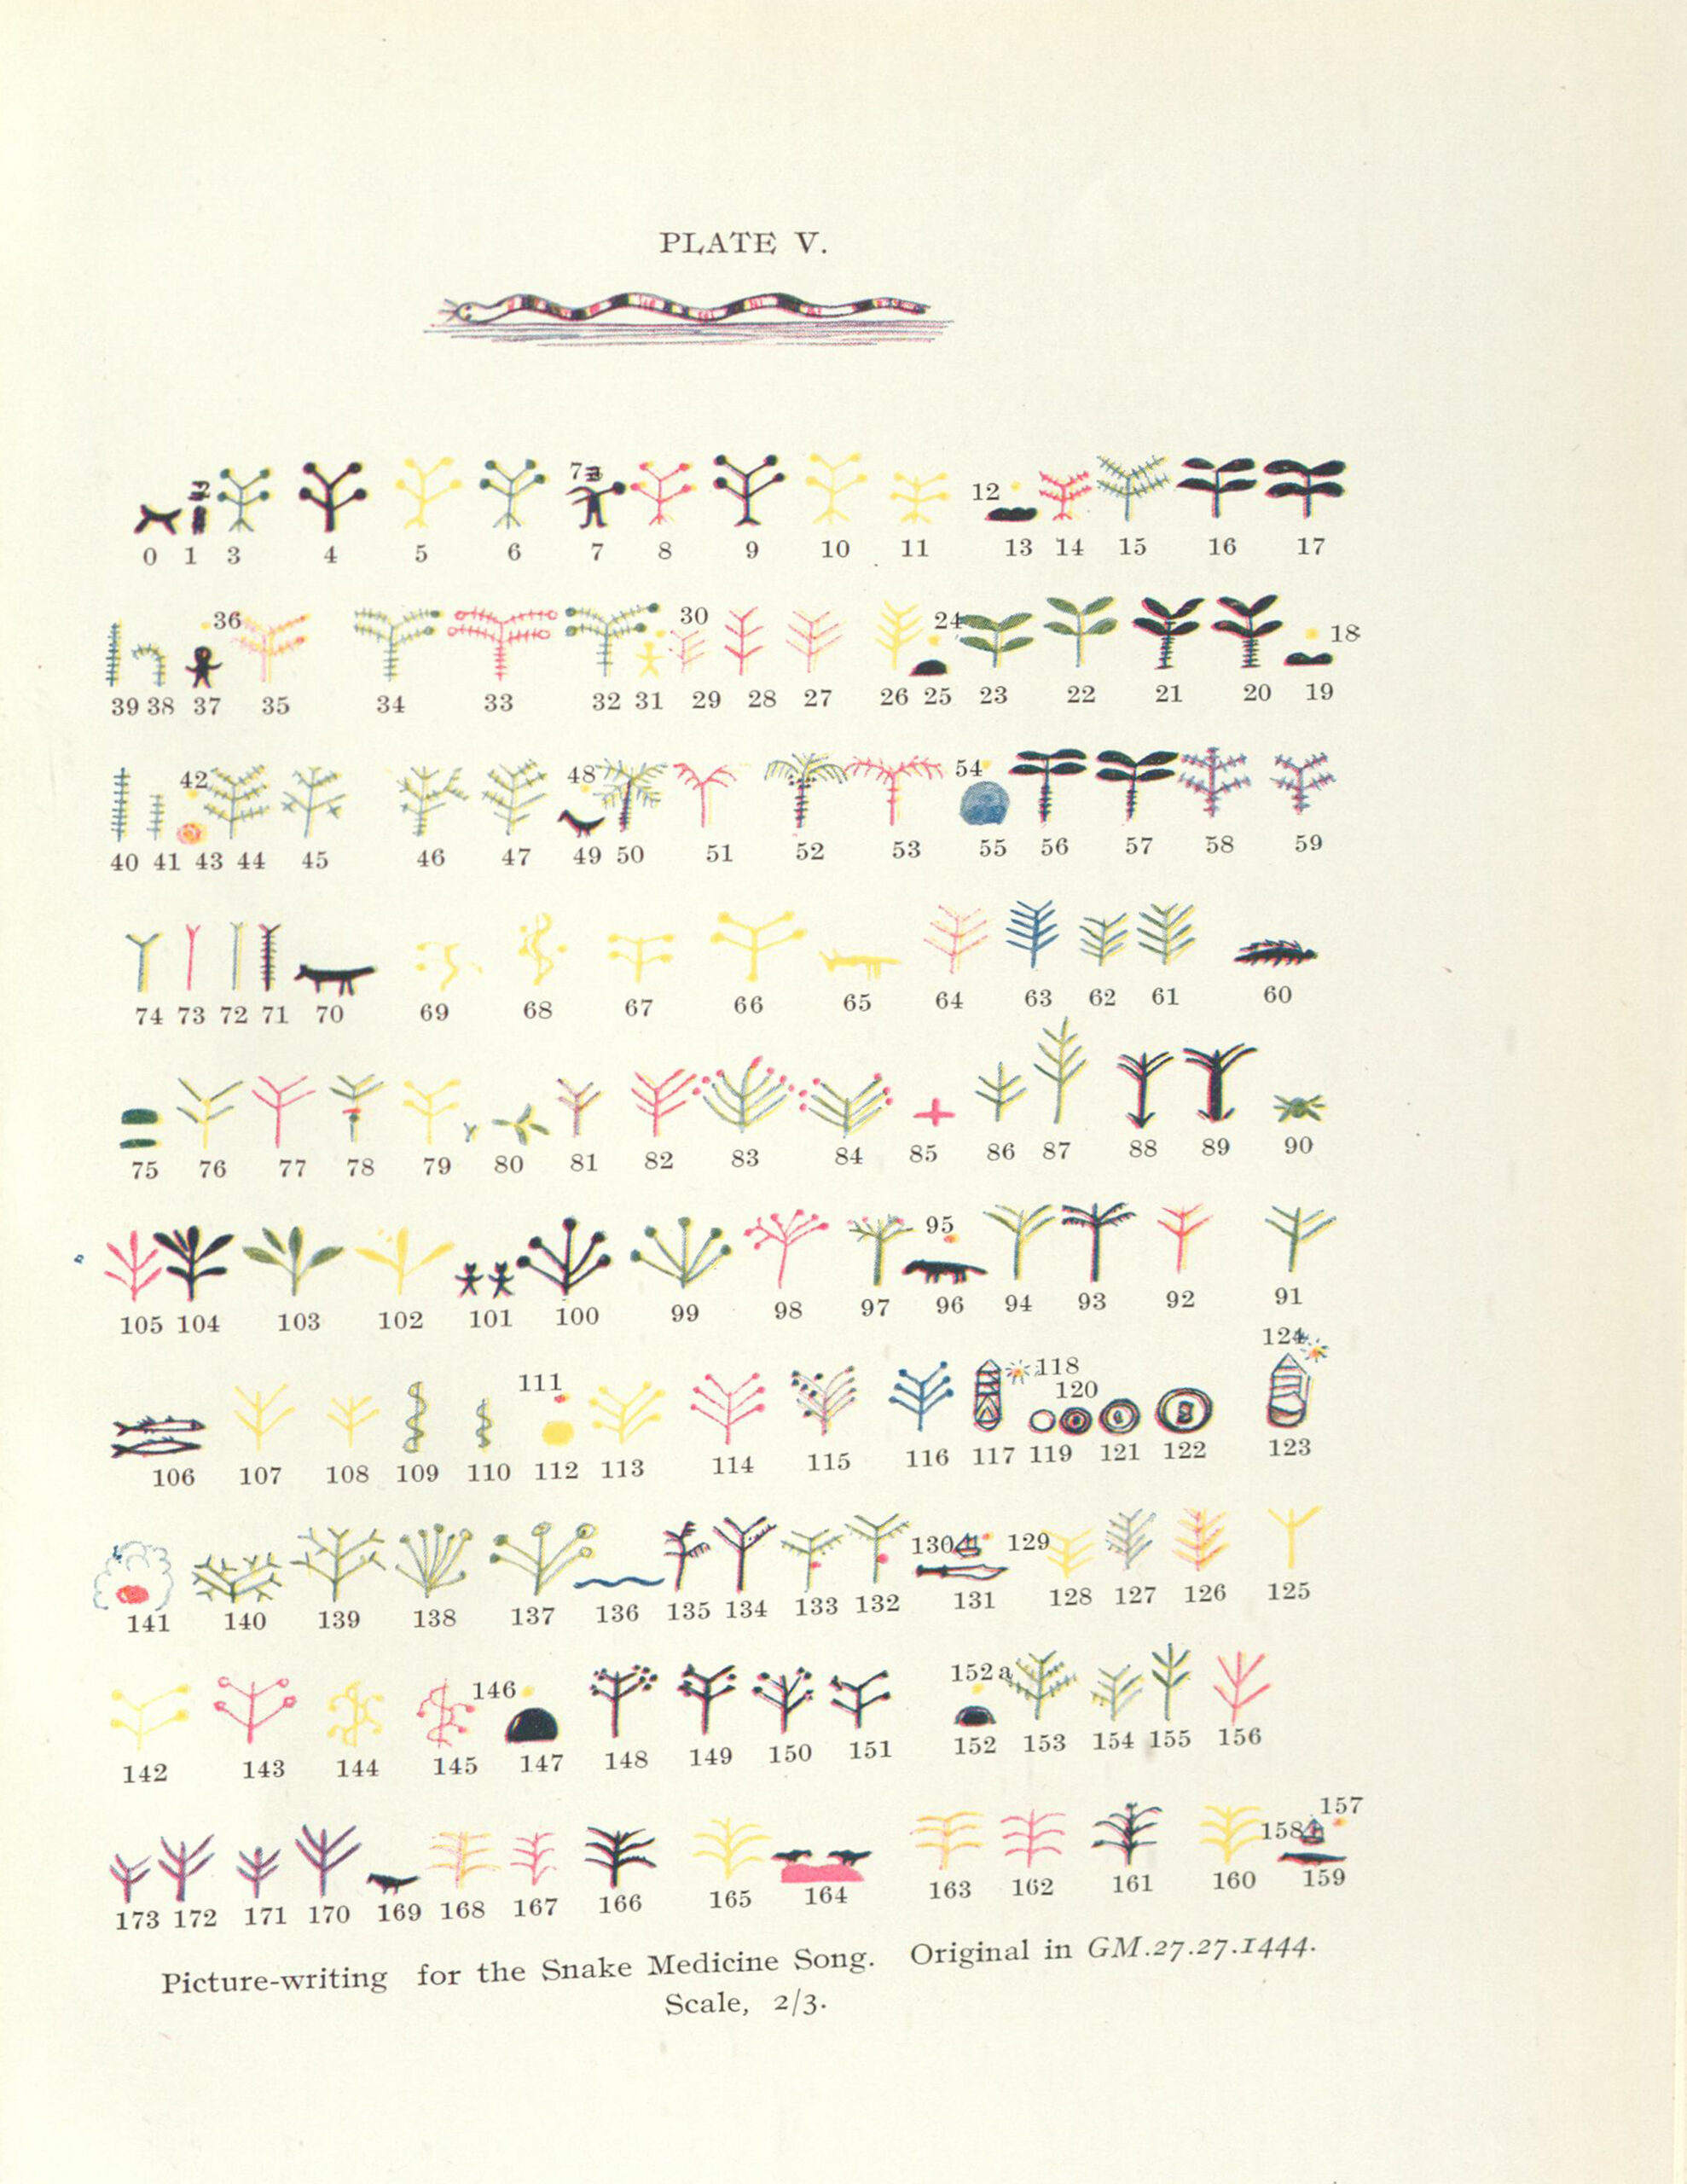 PLATE V.
2 7a 12
0 1 3 4 5 6 7 8 9 10 11 13 14 15 16 17
36 30 24 18
39 38 37 35 34 33 32 31 29 28 27 26 25 23 22 21 20 19
42 48 54
40 41 43 44 45 46 47 49 50 51 52 53 55 56 57 58 59
74 73 72 71 70 69 68 67 66 65 64 63 62 61 60
75 76 77 78 79 80 81 82 83 84 85 86 87 88 89 90
95
105 104 103 102 101 100 99 98 97 96 94 93 92 91
111 118 120 124
106 107 108 109 110 112 113 114 115 116 117 119 121 122 123
130 129
141 140 139 138 137 136 135 134 133 132 131 128 127 126 125
146 152a
142 143 144 145 147 148 149 150 151 152 153 154 155 156
157
158
173 172 171 170 169 168 167 166 165 164 163 162 161 160 159
Picture-writing for the Snake Medicine Song. Original in GM.27.27.1444.
Scale, 2/3.